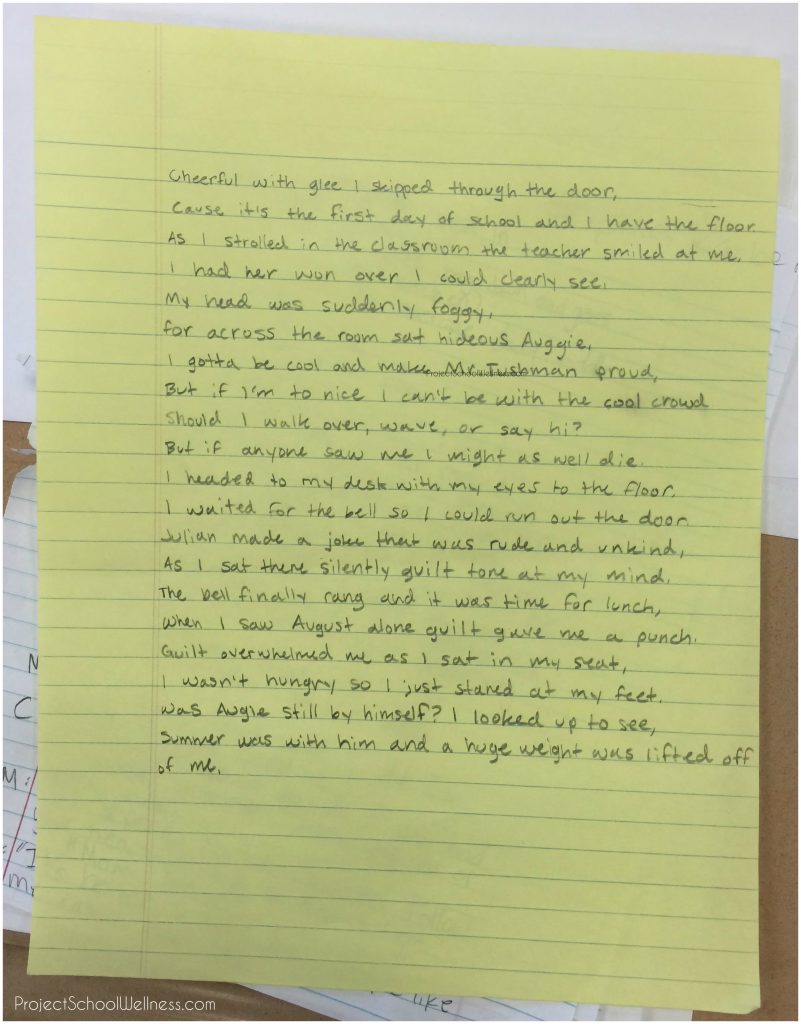 Cheerful with glee I skipped through the door,
Cause it's the first day of school and I have the floor.
As I strolled in the classroom the teacher smiled at me.
I had her won over I could clearly see.
My head was suddenly foggy,
for across the room sat hideous Auggie,
I gotta be cool and make Mr. Tushman proud,
ProjectSchoolWellness.com
But if I'm to nice I can't be with the cool crowd
Should I walk over, wave, or say hi?
But if anyone saw me I might as well die.
I headed to my desk with my eyes to the floor.
I waited for the bell so I could run out the door.
Julian made a joke that was rude and unkind,
As I sat there silently guilt tore at my mind.
The bell finally rang and it was time for lunch,
when I saw August alone guilt gave me a punch.
Guilt overwhelmed me as I sat in my seat,
I wasn't hungry so I just stared at my feet.
was Augie still by himself? I looked up to see,
Summer was with him and a huge weight was lifted off
of me.
N
C
M:
"I
like
ProjectSchoolWellness.com